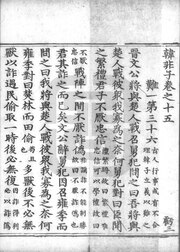 韓非子卷之十五
難一第三十六
晉文公將與楚人戰召舅犯問之曰吾將與
楚人戰彼衆我寡爲之奈何舅犯對曰臣聞
之繁禮君子不厭忠信
戰陣之間不厭詐僞
君其詐之而已矣文公辭舅犯因召雍季而
問之曰我將與楚人戰彼衆我寡爲之奈何
雍季對曰焚林而田偷取多獸後必無
獸以詐遇民偷取一時後必無復